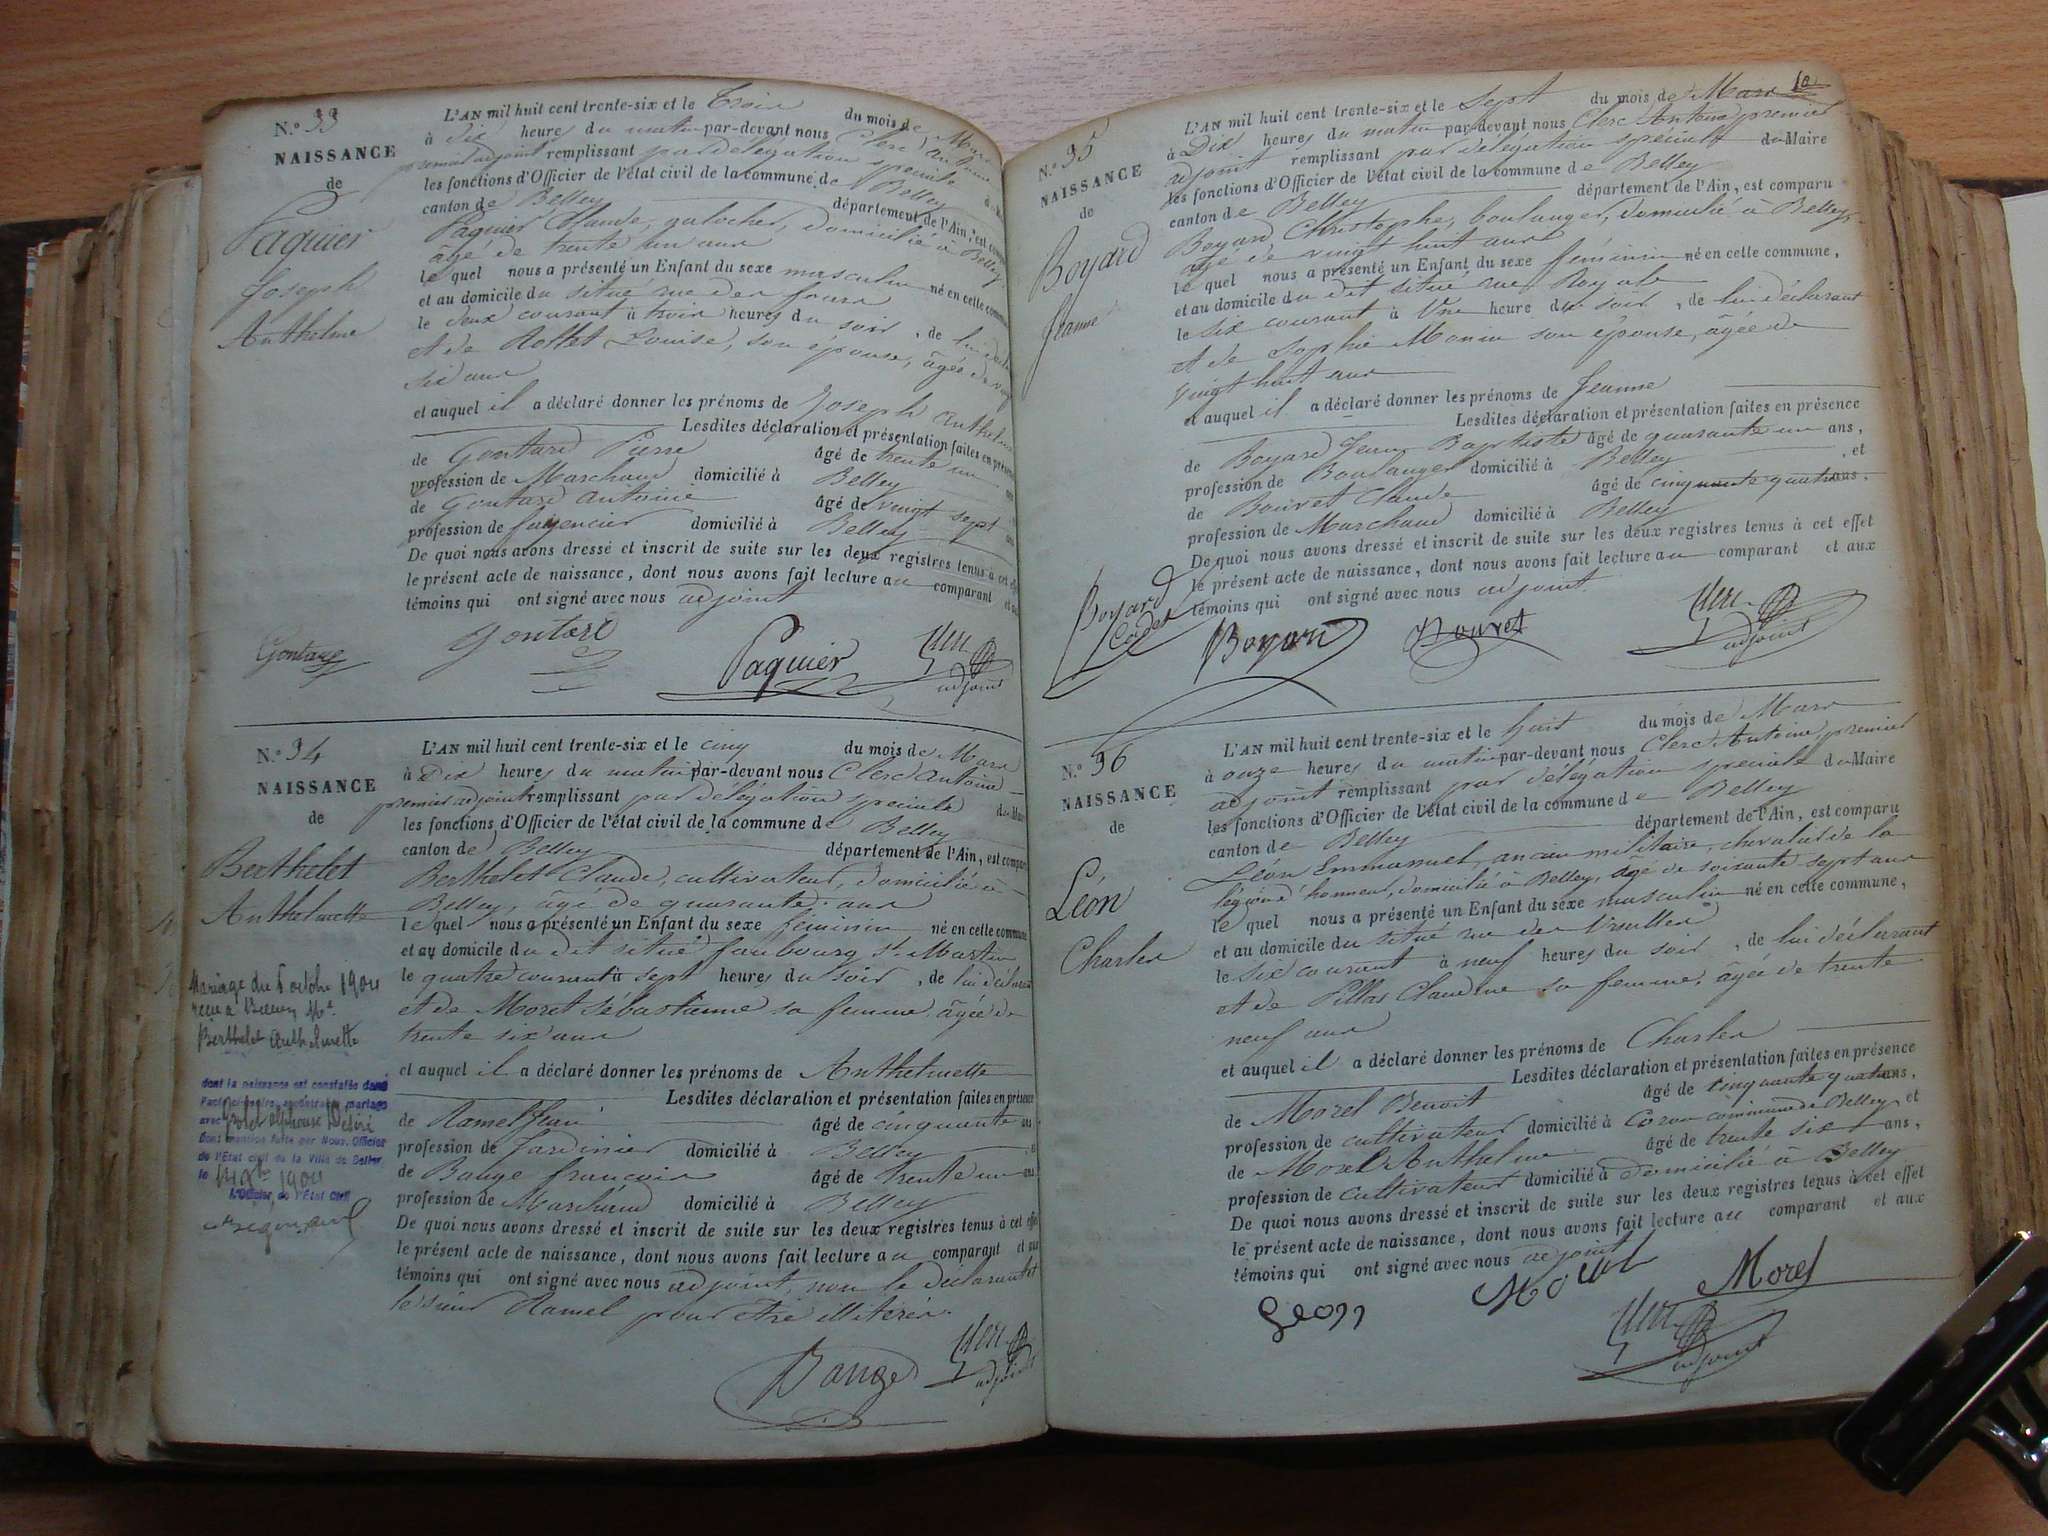 N.º 33
NAISSANCE
de
Paquier
Joseph
Anthelme
L'AN mil huit cent trente-six et le Trois du mois de Mars
à Dix heures du matin par-devant nous Clerc Antoine
premier adjoint remplissant par délégation spéciale
les fonctions d'Officier de l'état civil de la commune de Belley
canton de Belley département de l'Ain, est
Paquier Claude, galocher, domicilié à Belley
âgé de trente un ans
le quel nous a présenté un Enfant du sexe masculin né en cette
et au domicile du situé rue des fours
le deux courant à trois heures du soir, de lui
et de Rottet Louise, son épouse, âgée de
six ans
et auquel il a déclaré donner les prénoms de Joseph Anthelme
Lesdites déclaration et présentation faites en
de Gontard Pierre âgé de trente un
profession de Marchand domicilié à Belley
de Gontard Antoine âgé de vingt sept
profession de fayencier domicilié à Belley
De quoi nous avons dressé et inscrit de suite sur les deux registres tenus à cet
le présent acte de naissance, dont nous avons fait lecture au comparant et
témoins qui ont signé avec nous adjoint
Gontard
Gontard
Paquier
Clerc
adjoint
N.º 34
NAISSANCE
de
Berthelet
Anthelmette
L'AN mil huit cent trente-six et le cinq du mois de Mars
à Dix heures du matin par-devant nous Clerc Antoine
premier adjoint remplissant par délégation spéciale
les fonctions d'Officier de l'état civil de la commune de Belley
canton de Belley département de l'Ain, est
Berthelet Claude, cultivateur, domicilié à
Belley, âgé de quarante ans
le quel nous a présenté un Enfant du sexe féminin né en cette
et au domicile du dit situé faubourg St. Martin
le quatre courant à sept heures du soir, de lui déclarant
et de Moret Sébastienne sa femme âgée de
trente six ans
et auquel il a déclaré donner les prénoms de Anthelmette
Lesdites déclaration et présentation faites en présence
de Ramel Jean âgé de cinquante
profession de Jardinier domicilié à Belley
de Bauge françois âgé de trente un ans
profession de Marchand domicilié à Belley
De quoi nous avons dressé et inscrit de suite sur les deux registres tenus à cet effet
le présent acte de naissance, dont nous avons fait lecture au comparant et aux
témoins qui ont signé avec nous adjoint, non le déclarant et
le sieur Ramel pour être illitérés.
Bauge
Clerc
adjoint
Mariage du 5 octobre 1904
Berthelet Anthelmette
dont la naissance est constatée dans
mariage
avec alphonse Désiré
Dont mention faite par Nous, Officier
de l'État civil de la Ville de Belley
le 1904
L'Officier de l'État Civil
10
N.º 35
NAISSANCE
de
Boyard
Jeanne
L'AN mil huit cent trente-six et le Sept du mois de Mars
à Dix heures du matin par-devant nous Clerc Antoine premier
adjoint remplissant par délégation spéciale du Maire
les fonctions d'Officier de l'état civil de la commune de Belley
canton de Belley département de l'Ain, est comparu
Boyard Christophe, boulanger, domicilié à Belley,
âgé de vingt huit ans
le quel nous a présenté un Enfant du sexe féminin né en cette commune,
et au domicile du dit situé rue Royale
le six courant à Une heure du soir, de lui déclarant
et de Sophie Monin son épouse, âgée de
vingt huit ans
et auquel il a déclaré donner les prénoms de Jeanne
Lesdites déclaration et présentation faites en présence
de Boyard Jean Baptiste âgé de quarante un ans,
profession de Boulanger domicilié à Belley, et
de Bouvet Claude âgé de cinquante quatre ans,
profession de Marchand domicilié à Belley
De quoi nous avons dressé et inscrit de suite sur les deux registres tenus à cet effet
le présent acte de naissance, dont nous avons fait lecture au comparant et aux
témoins qui ont signé avec nous adjoint.
Boyard
Cadet
Boyard
Bouvet
Clerc
adjoint
N.º 36
NAISSANCE
de
Léon
Charles
L'AN mil huit cent trente-six et le huit du mois de Mars
à onze heures du matin par-devant nous Clerc Antoine premier
adjoint remplissant par délégation spéciale du Maire
les fonctions d'Officier de l'état civil de la commune de Belley
canton de Belley département de l'Ain, est comparu
Léon Emmanuel, ancien militaire, chevalier de la
légion d'honneur, domicilié à Belley, âgé de soixante sept ans
le quel nous a présenté un Enfant du sexe masculin né en cette commune,
et au domicile du situé rue des Ursulles
le six courant à neuf heures du soir, de lui déclarant
et de Pillas Claudine sa femme, âgée de trente
neuf ans
et auquel il a déclaré donner les prénoms de Charles
Lesdites déclaration et présentation faites en présence
de Morel Benoit âgé de cinquante quatre ans,
profession de cultivateur domicilié à Coron commune de Belley et
de Morel Anthelme âgé de trente six ans,
profession de cultivateur domicilié à domicilié à Belley
De quoi nous avons dressé et inscrit de suite sur les deux registres tenus à cet effet
le présent acte de naissance, dont nous avons fait lecture au comparant et aux
témoins qui ont signé avec nous adjoint
Leon
Morel
Morel
Clerc
adjoint